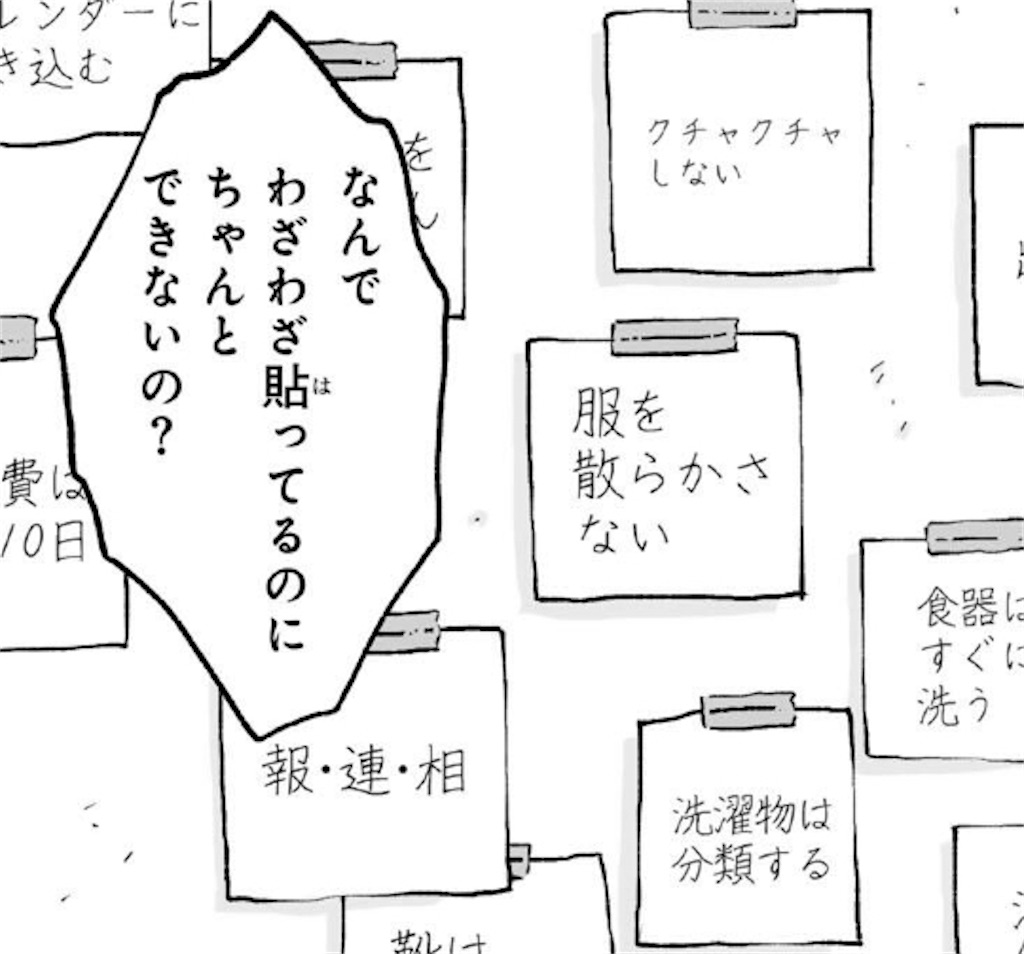 レンダーに
き込む
を
なんで
わざわざ貼ってるのに
は
ちゃんと
できないの?
クチャクチャ
しない
服を
散らかさ
ない
費は
10日
食器は
すぐに
洗う
報・連・相
洗濯物は
分類する
靴は